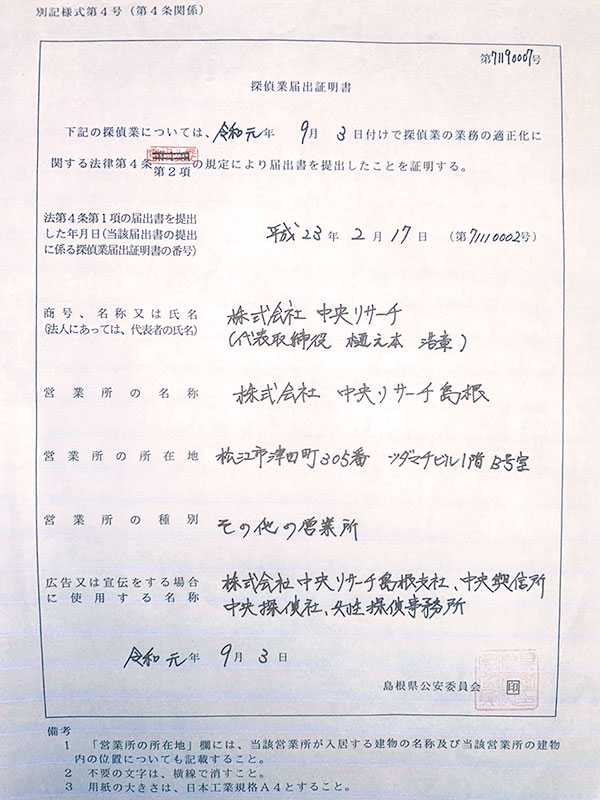 別記様式第4号（第4条関係）
第71190007号
探偵業届出証明書
下記の探偵業については、令和元年 9月 3日付けで探偵業の業務の適正化に
関する法律第4条第1項の規定により届出書を提出したことを証明する。
第2項
法第4条第1項の届出書を提出
した年月日(当該届出書の提出
に係る探偵業届出証明書の番号)
平成23年2月17日 （第71110002号）
商号、名称又は氏名
(法人にあっては、代表者の氏名)
株式会社 中央リサーチ
(代表取締役 植元本 浩章)
営業所の名称
株式会社 中央リサーチ島根
営業所の所在地
松江市津田町305番 ツダマチビル1階B号室
営業所の種別
その他の営業所
広告又は宣伝をする場合
に使用する名称
株式会社中央リサーチ島根支社、中央興信所
中央探偵社、女性探偵事務所
令和元年9月3日
島根県公安委員会 印
備考
1 「営業所の所在地」欄には、当該営業所が入居する建物の名称及び当該営業所の建物
内の位置についても記載すること。
2 不要の文字は、横線で消すこと。
3 用紙の大きさは、日本工業規格A4とすること。